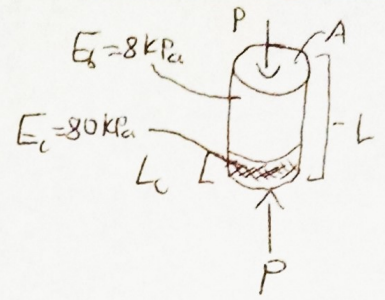 P
A
E_b=8kPa
E_c=80kPa
L
L_c
P